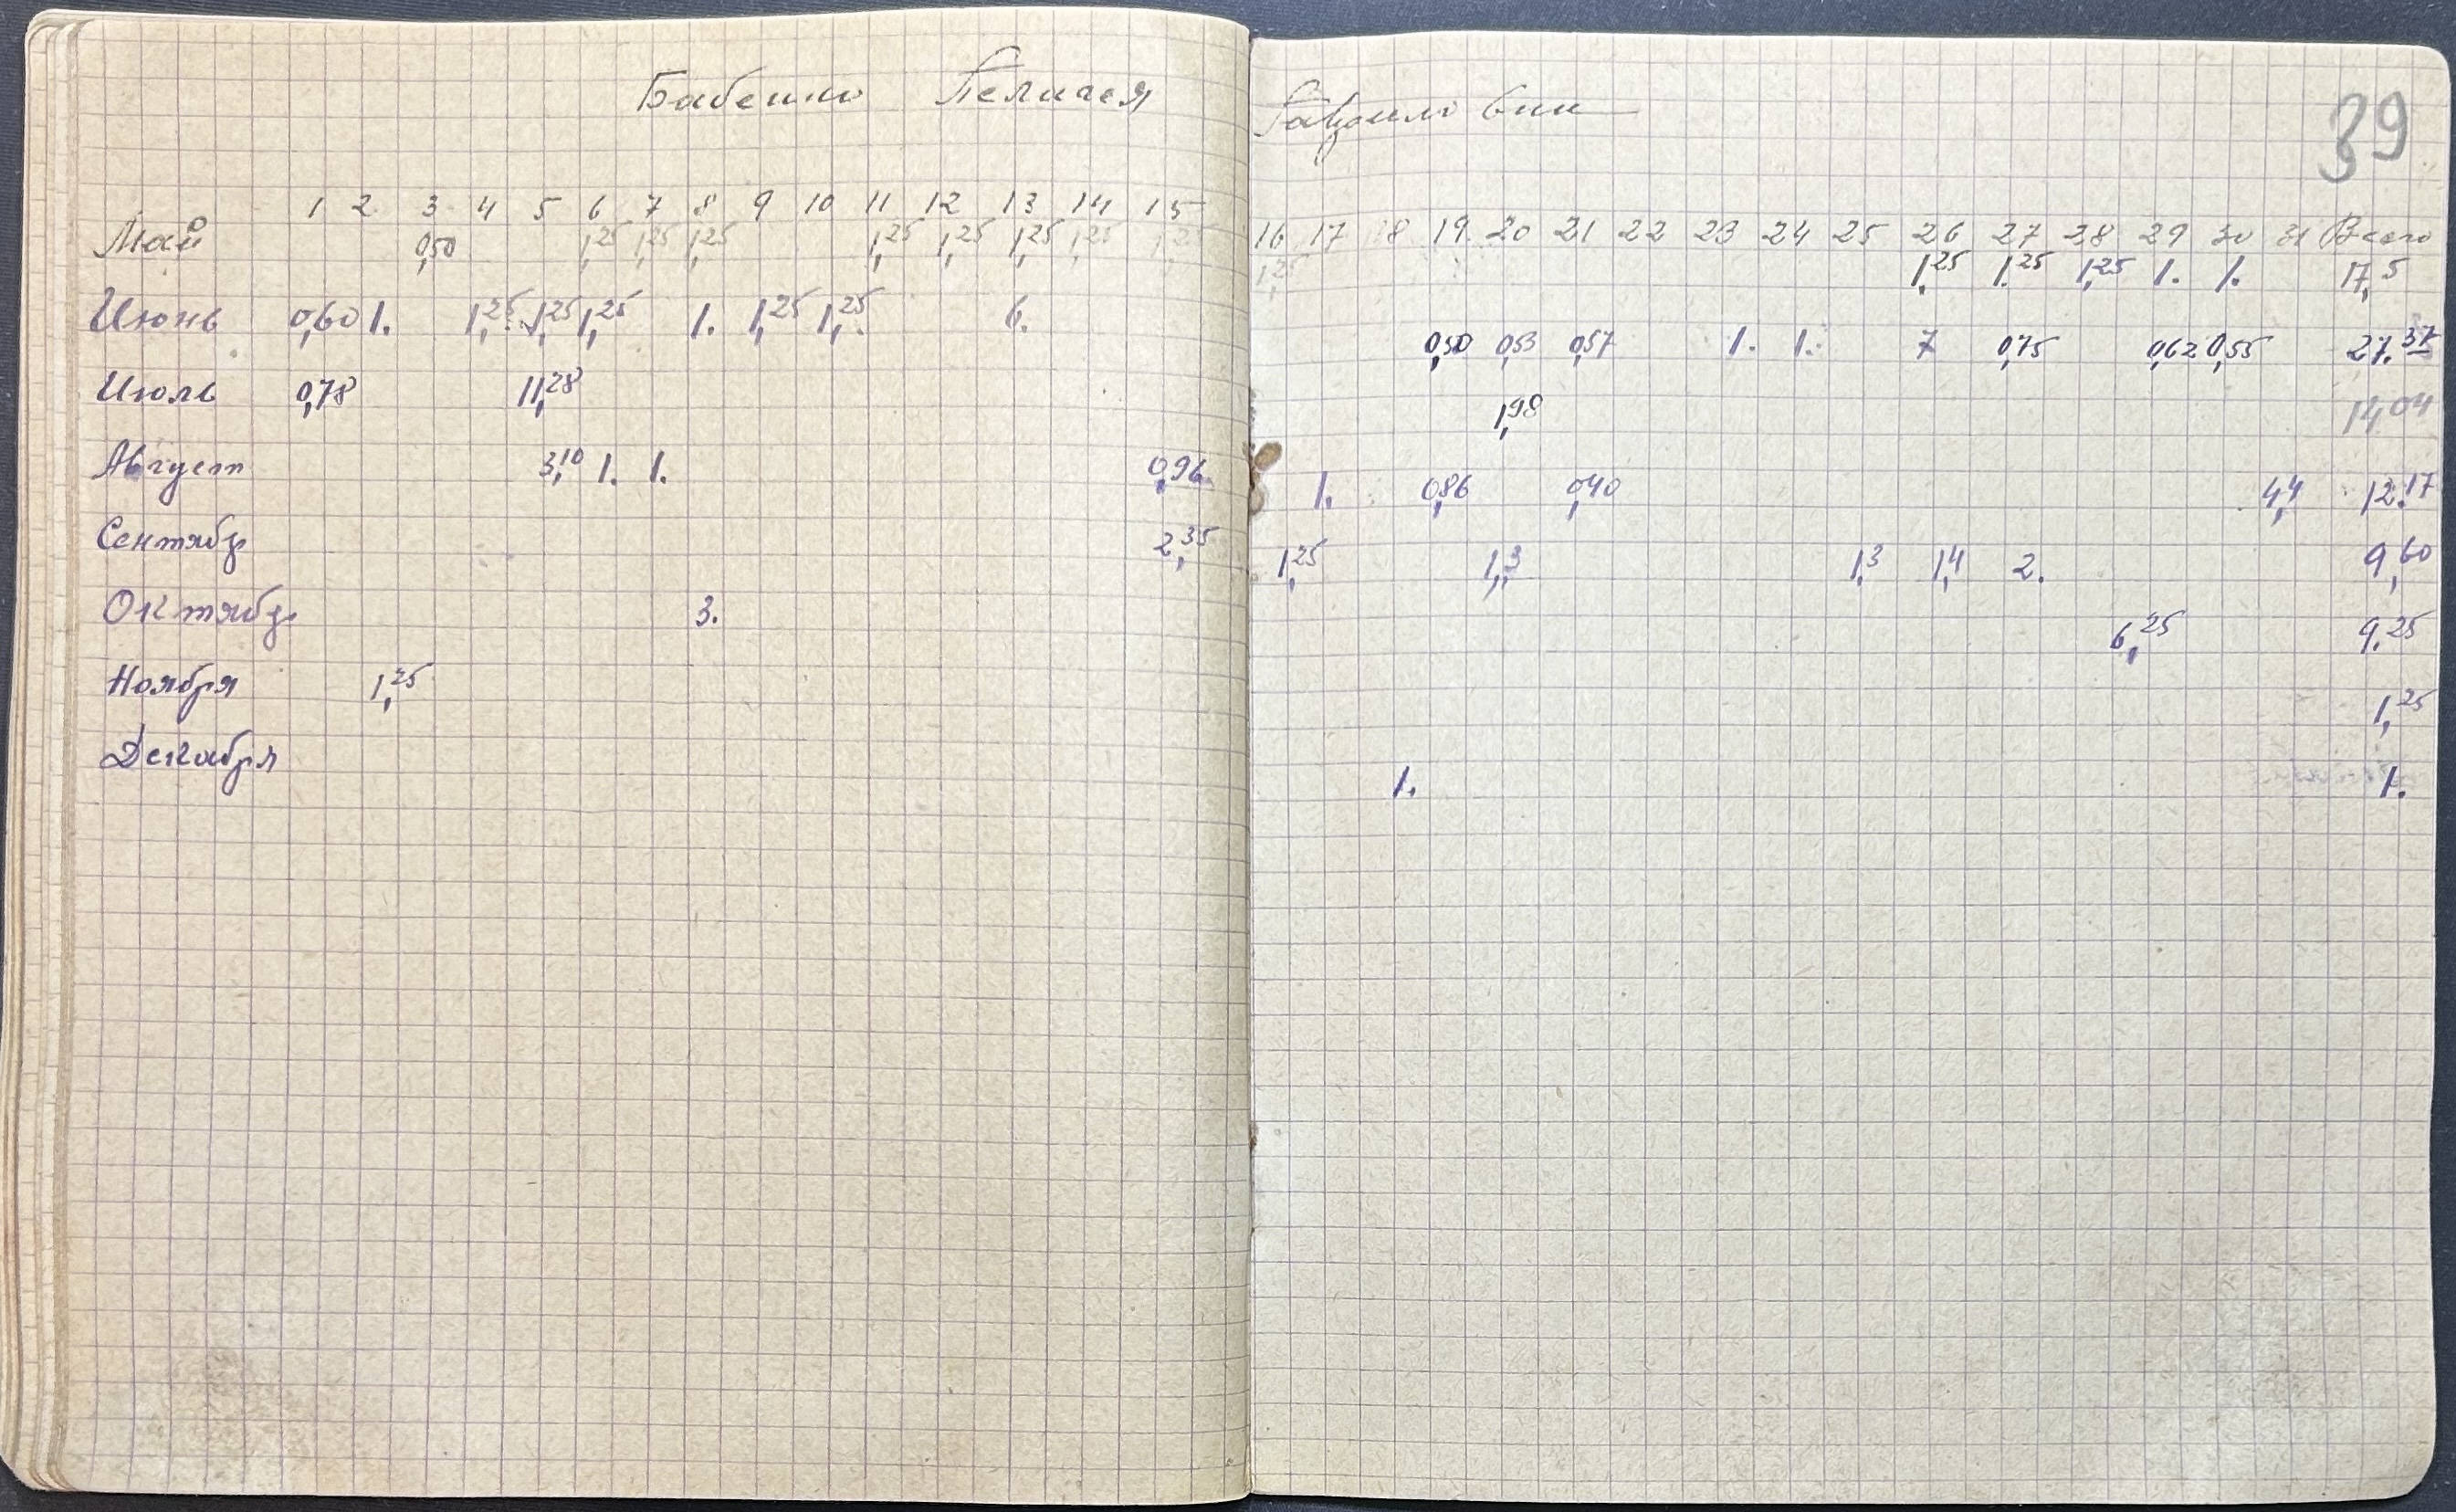 Бабенко Пелагея Гавриловни
39
1 2 3 4 5 6 7 8 9 10 11 12 13 14 15 16 17 18 19 20 21 22 23 24 25 26 27 28 29 30 31 Всего
Май 0,50 1,25 1,25 1,25 1,25 1,25 1,25 1,25 1,25 1,25 1,25 1,25 1,25 1. 1. 17,5
Июнь 0,60 1. 1,25 1,25 1,25 1. 1,25 1,25 6. 0,50 0,53 0,57 1. 1. 7 0,75 0,62 0,55 27.37
Июль 0,78 11,28 1,98 14,04
Август 3,10 1. 1. 0,96 1. 0,86 0,40 4,4 12.17
Сентябр 2,35 1,25 1,3 1,3 1,4 2. 9,60
Октябр 3. 6,25 9.25
Ноября 1,25 1,25
Декабря 1. 1.